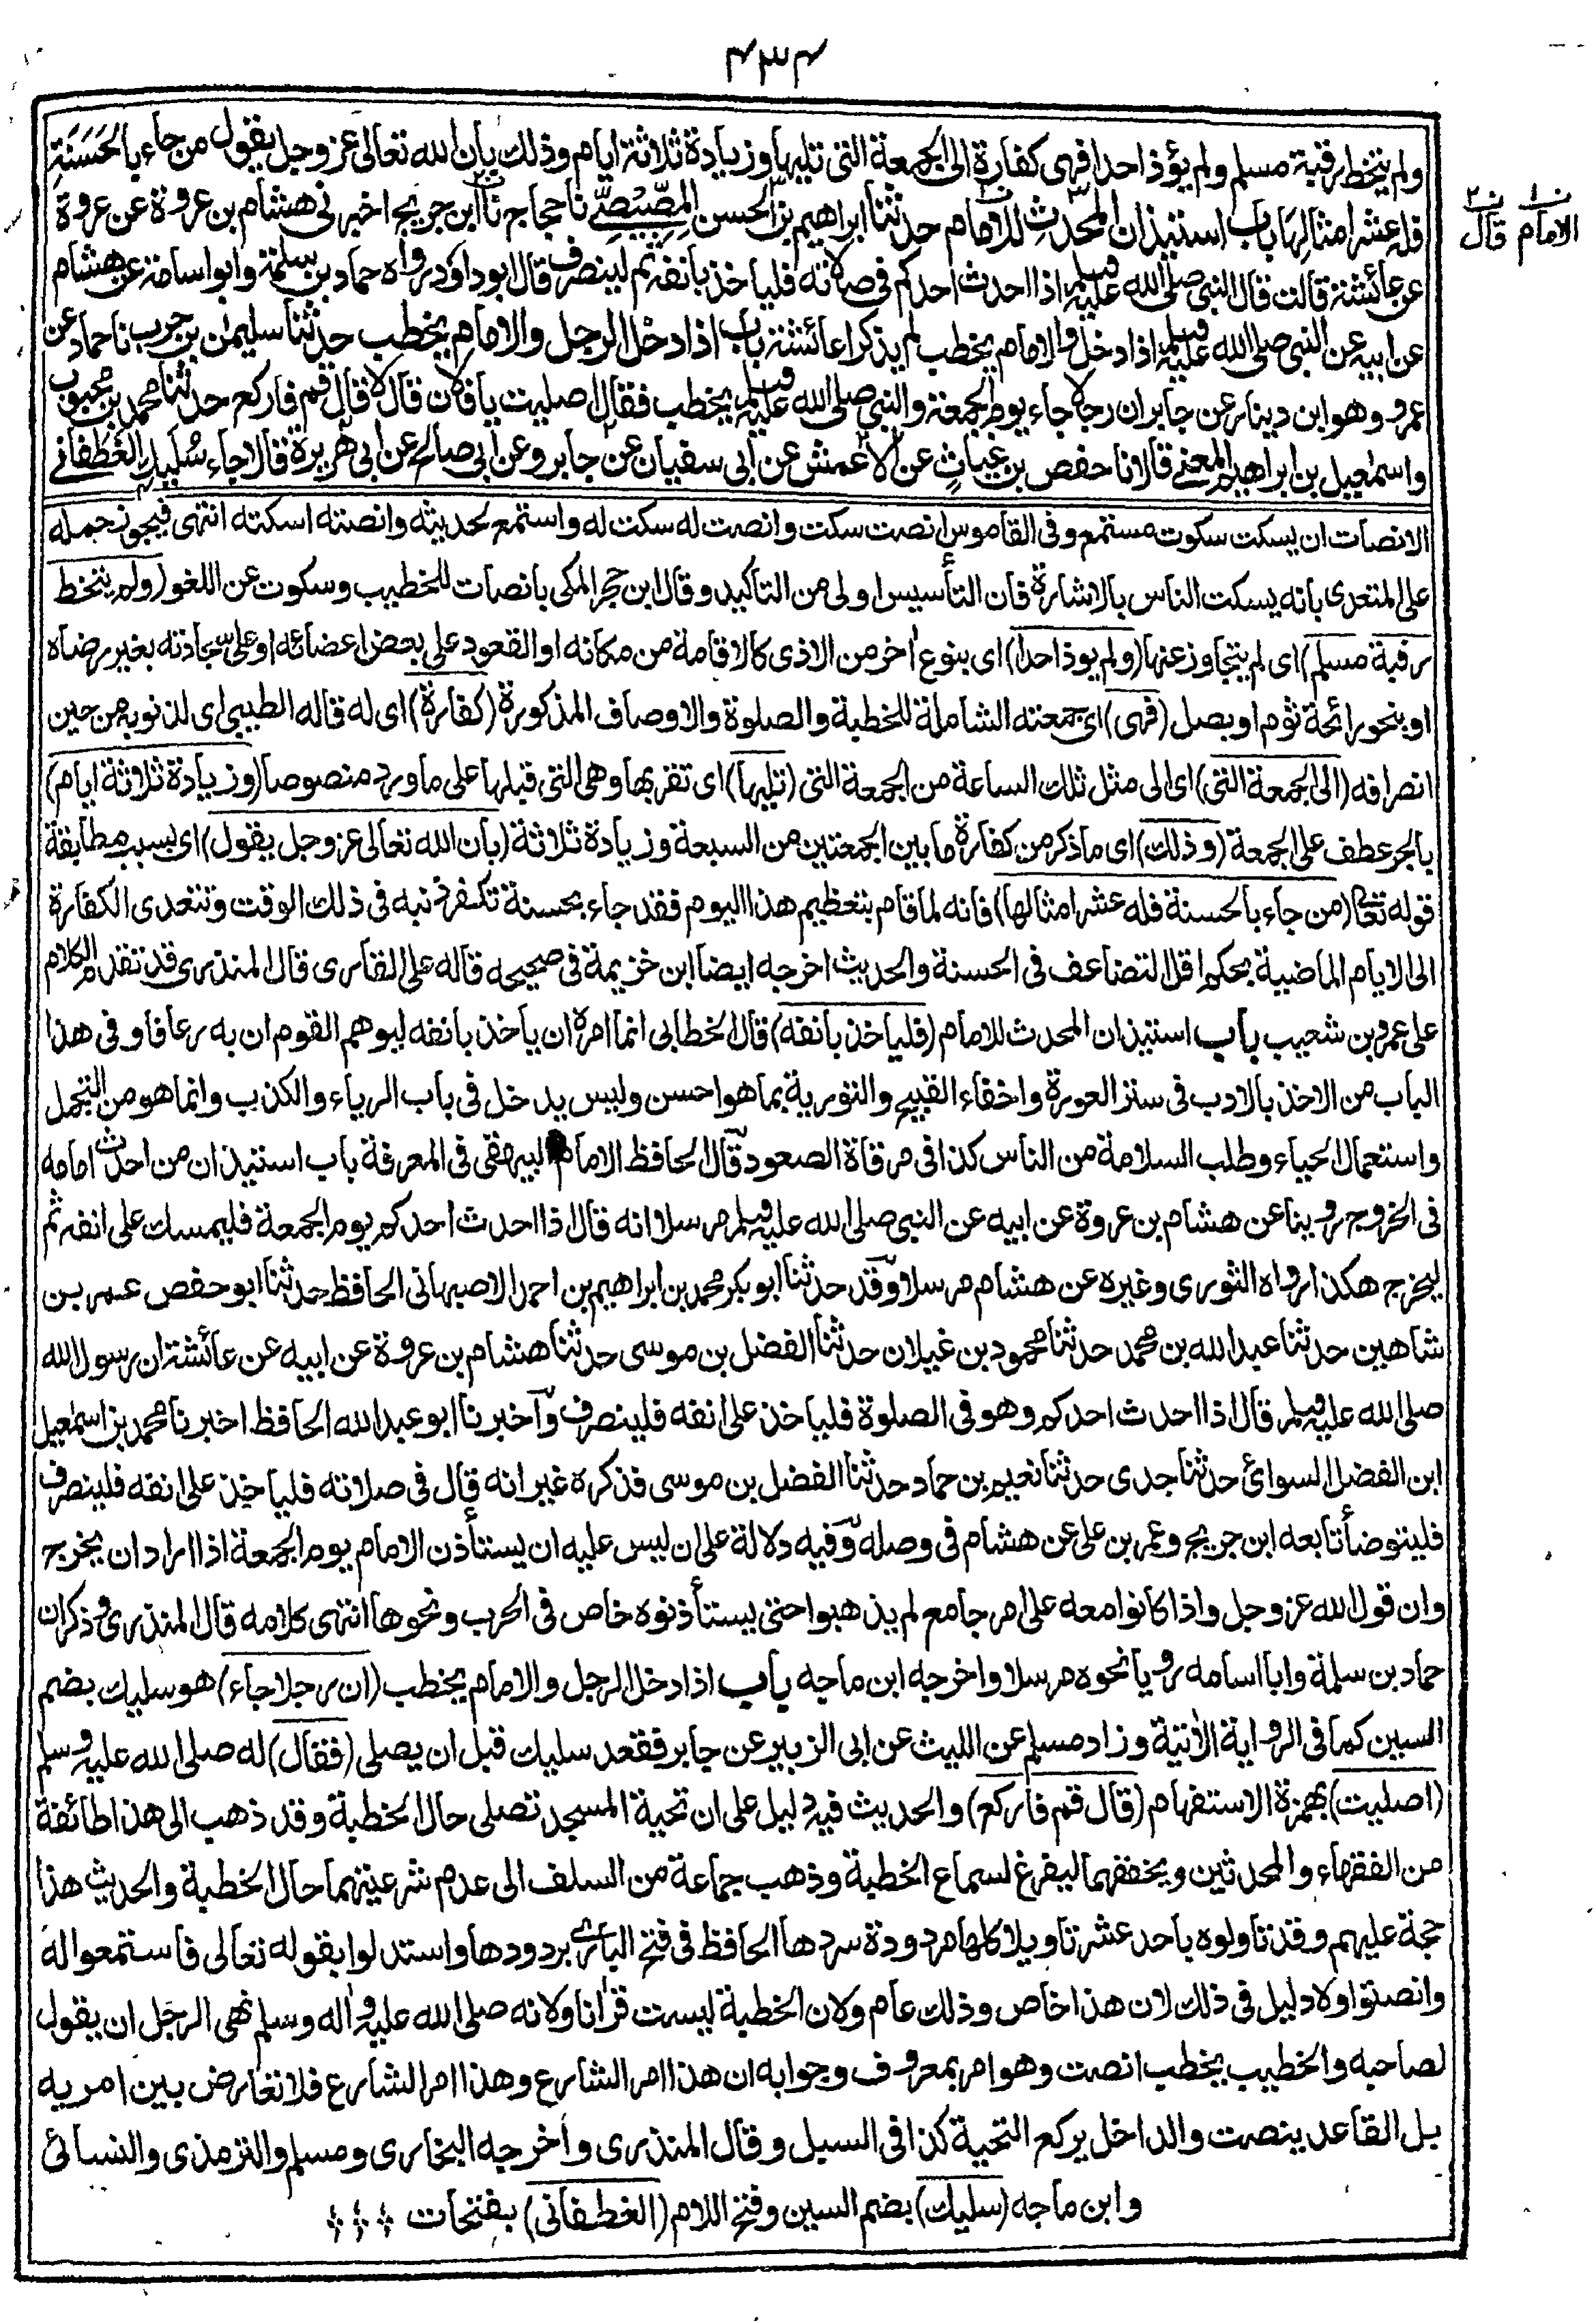 ٤٣٤
ولم يتخط رقبة مسلم ولم يؤذ احدا فهى كفارة الى الجمعة التى تليها وزيادة ثلاثة ايام وذلك بان الله تعالى عز وجل يقول من جاء بالْحَسَنَةِ
فله عشر امثالها باب استيذان المحدث للامام حدثنا ابراهيم بن الحسن المِصِّيْصِيّ نا حجاج نا ابن جريج اخبرنى هشام بن عروة عن عروة
ن١ الامام ن٢ قال
عن عائشة قالت قال النبى صلى الله عليه وسلم اذا احدث احدكم فى صلاته فلياخذ بانفه ثم لينصرف قال ابو داود رواه حماد بن سلمة وابو اسامة عن هشام
عن ابيه عن النبى صلى الله عليه وسلم اذا دخل والامام يخطب لم يذكرا عائشة باب اذا دخل الرجل والامام يخطب حدثنا سليمن بن حرب نا حماد عن
عمرو وهو ابن دينار عن جابر ان رجلا جاء يوم الجمعة والنبى صلى الله عليه وسلم يخطب فقال اصليت يا فلان قال لا قال قم فاركع حدثنا محمد بن محبوب
واسمعيل بن ابراهيم المعنى قالا نا حفص بن غياث عن الاعمش عن ابى سفيان عن جابر وعن ابى صالح عن ابى هريرة قالا جاء سُلَيْك الغَطَفانى
الانصات ان يسكت سكوت مستمع وفى القاموس انصت سكت وانصت له سكت له واستمع لحديثه وانصته اسكته انتهى فيجوز حمله
على المتعدى بانه يسكت الناس بالاشارة فان التأسيس اولى من التاكيد وقال ابن حجر المكى بانصات للخطيب وسكوت عن اللغو (ولم يتخط
رقبة مسلم) اى لم يتجاوز عنها (ولم يوذ احدا) اى بنوع اخر من الاذى كالاقامة من مكانه او القعود على بعض اعضائه او على سجادته بغير رضاه
او بنحو رائحة ثوم او بصل (فهى) اى جمعته الشاملة للخطبة والصلوة والاوصاف المذكورة (كفارة) اى له قاله الطيبى اى لذنوبه من حين
انصرافه (الى الجمعة التى) اى الى مثل تلك الساعة من الجمعة التى (تليها) اى تقربها وهى التى قبلها على ما ورد منصوصا (وزيادة ثلاثة ايام)
بالجر عطف على الجمعة (وذلك) اى ما ذكر من كفارة ما بين الجمعتين من السبعة وزيادة ثلاثة (بان الله تعالى عز وجل يقول) اى بسبب مطابقة
قوله تعالى (من جاء بالحسنة فله عشر امثالها) فانه لما قام بتعظيم هذا اليوم فقد جاء بحسنة تكفر ذنبه فى ذلك الوقت وتتعدى الكفارة
الى الايام الماضية بحكم اقل التضاعف فى الحسنة والحديث اخرجه ايضا ابن خزيمة فى صحيحه قاله على القارى قال المنذرى قد تقدم الكلام
على عمرو بن شعيب باب استيذان المحدث للامام (فلياخذ بانفه) قال الخطابى انما امره ان ياخذ بانفه ليوهم القوم ان به رعافا وفى هذا
الباب من الاخذ بالادب فى ستر العورة واخفاء القبيح والتورية بما هو احسن وليس يدخل فى باب الرياء والكذب وانما هو من التجمل
واستعمال الحياء وطلب السلامة من الناس كذا فى مرقاة الصعود قال الحافظ الامام البيهقى فى المعرفة باب استيذان من احدث امامه
فى الخروج روينا عن هشام بن عروة عن ابيه عن النبى صلى الله عليه وسلم مرسلا انه قال اذا احدث احدكم يوم الجمعة فليمسك على انفه ثم
ليخرج هكذا رواه الثورى وغيره عن هشام مرسلا وقد حدثنا ابو بكر محمد بن ابراهيم بن احمد الاصبهانى الحافظ حدثنا ابو حفص عمر بن
شاهين حدثنا عبد الله بن محمد حدثنا محمود بن غيلان حدثنا الفضل بن موسى حدثنا هشام بن عروة عن ابيه عن عائشة ان رسول الله
صلى الله عليه وسلم قال اذا احدث احدكم وهو فى الصلوة فلياخذ على انفه فلينصرف واخبرنا ابو عبد الله الحافظ اخبرنا محمد بن اسمعيل
ابن الفضل السوائ حدثنا جدى حدثنا نعيم بن حماد حدثنا الفضل بن موسى فذكره غير انه قال فى صلاته فلياخذ على انفه فلينصرف
فليتوضأ تابعه ابن جريج وعمر بن على عن هشام فى وصله وفيه دلالة على ان ليس عليه ان يستأذن الامام يوم الجمعة اذا اراد ان يخرج
وان قول الله عز وجل واذا كانوا معه على امر جامع لم يذهبوا حتى يستأذنوه خاص فى الحرب ونحوها انتهى كلامه قال المنذرى وذكر ان
حماد بن سلمة وابا اسامه رويا نحوه مرسلا واخرجه ابن ماجه باب اذا دخل الرجل والامام يخطب (ان رجلا جاء) هو سليك بضم
السين كما فى الرواية الاٰتية وزاد مسلم عن الليث عن ابى الزبير عن جابر فقعد سليك قبل ان يصلى (فقال) له صلى الله عليه وسلم
(اصليت) بهمزة الاستفهام (قال قم فاركع) والحديث فيه دليل على ان تحية المسجد تصلى حال الخطبة وقد ذهب الى هذا طائفة
من الفقهاء والمحدثين ويخففهما ليفرغ لسماع الخطبة وذهب جماعة من السلف الى عدم شرعيتهما حال الخطبة والحديث هذا
حجة عليهم وقد تاولوه باحد عشر تاويلا كلها مردودة سردها الحافظ فى فتح البارى بردودها واستدلوا بقوله تعالى فاستمعوا له
وانصتوا ولا دليل فى ذلك لان هذا خاص وذلك عام ولان الخطبة ليست قرانا ولانه صلى الله عليه واله وسلم نهى الرجل ان يقول
لصاحبه والخطيب يخطب انصت وهو امر بمعروف وجوابه ان هذا امر الشارع وهذا امر الشارع فلا تعارض بين امريه
بل القاعد ينصت والداخل يركع التحية كذا فى السبل وقال المنذرى واخرجه البخارى ومسلم والترمذى والنسائى
وابن ماجه (سليك) بضم السين وفتح اللام (الغطفانى) بفتحات